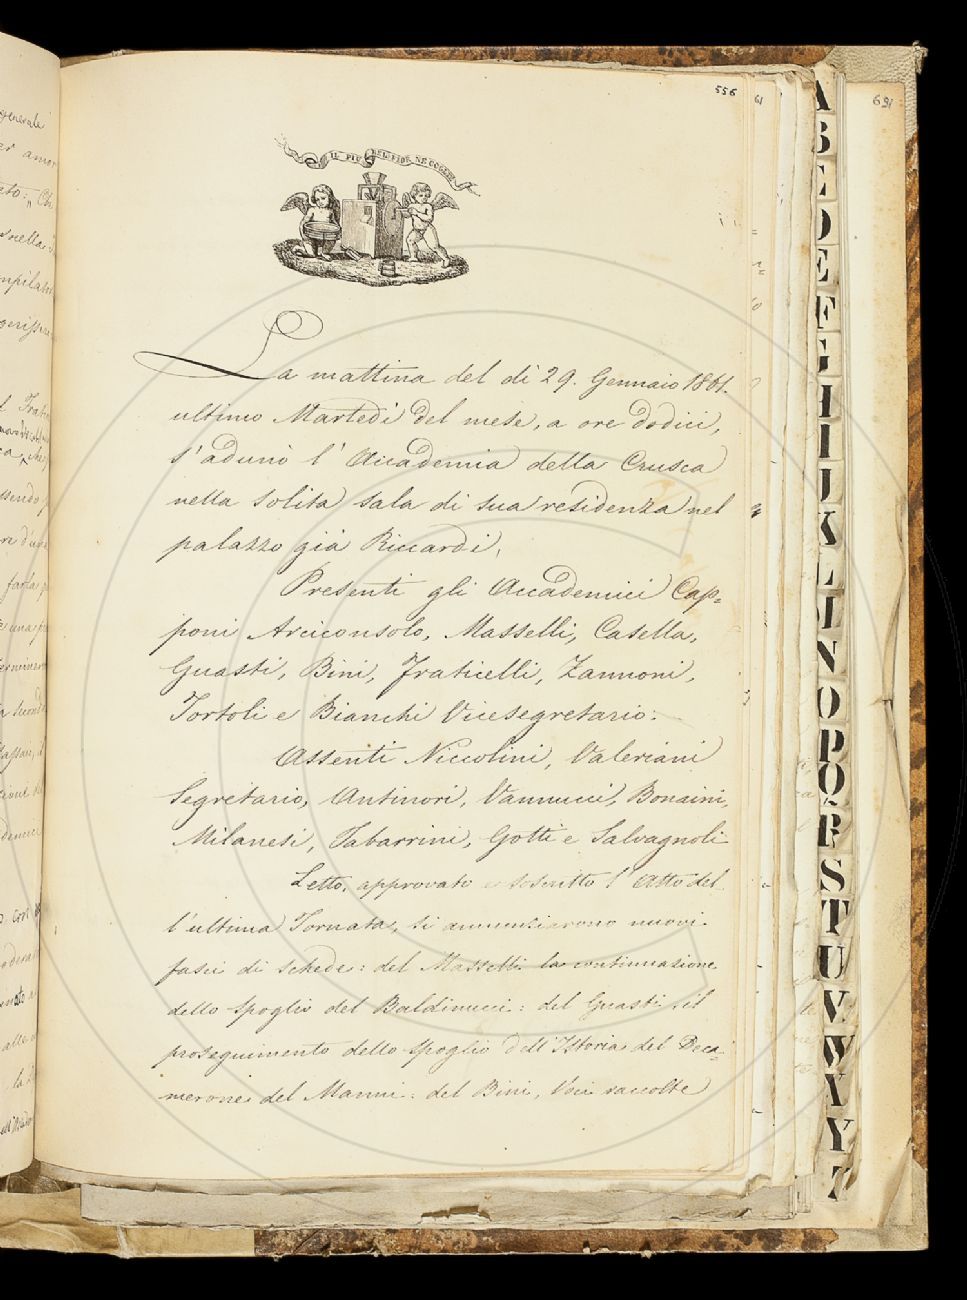 556
61
691
IL PIÙ BEL FIOR NE COGLIE
La mattina del dì 29. Gennaio 1861.
ultimo Martedì del mese, a ore dodici,
s'adunò l'Accademia della Crusca
nella solita sala di sua residenza nel
palazzo già Riccardi.
Presenti gli Accademici Cap=
poni Arciconsolo, Masselli, Casella,
Guasti, Bini, Fraticelli, Zannoni,
Tortoli e Bianchi Vicesegretario:
Assenti Niccolini, Valeriani
Segretario, Antinori, Vannucci, Bonaini,
Milanesi, Tabarrini, Gotti e Salvagnoli
Letto, approvato e soscritto l'Atto del=
l'ultima Tornata, si annunziarono nuovi
fasci di schede: del Masselli la continuazione
dello spoglio del Baldinucci: del Guasti il
proseguimento dello spoglio dell'Istoria del Deca=
merone del Manni: del Bini, Voci raccolte
A
B
C
D
E
F
G
H
I
J
K
L
M
N
O
P
Q
R
S
T
U
V
W
X
Y
Z